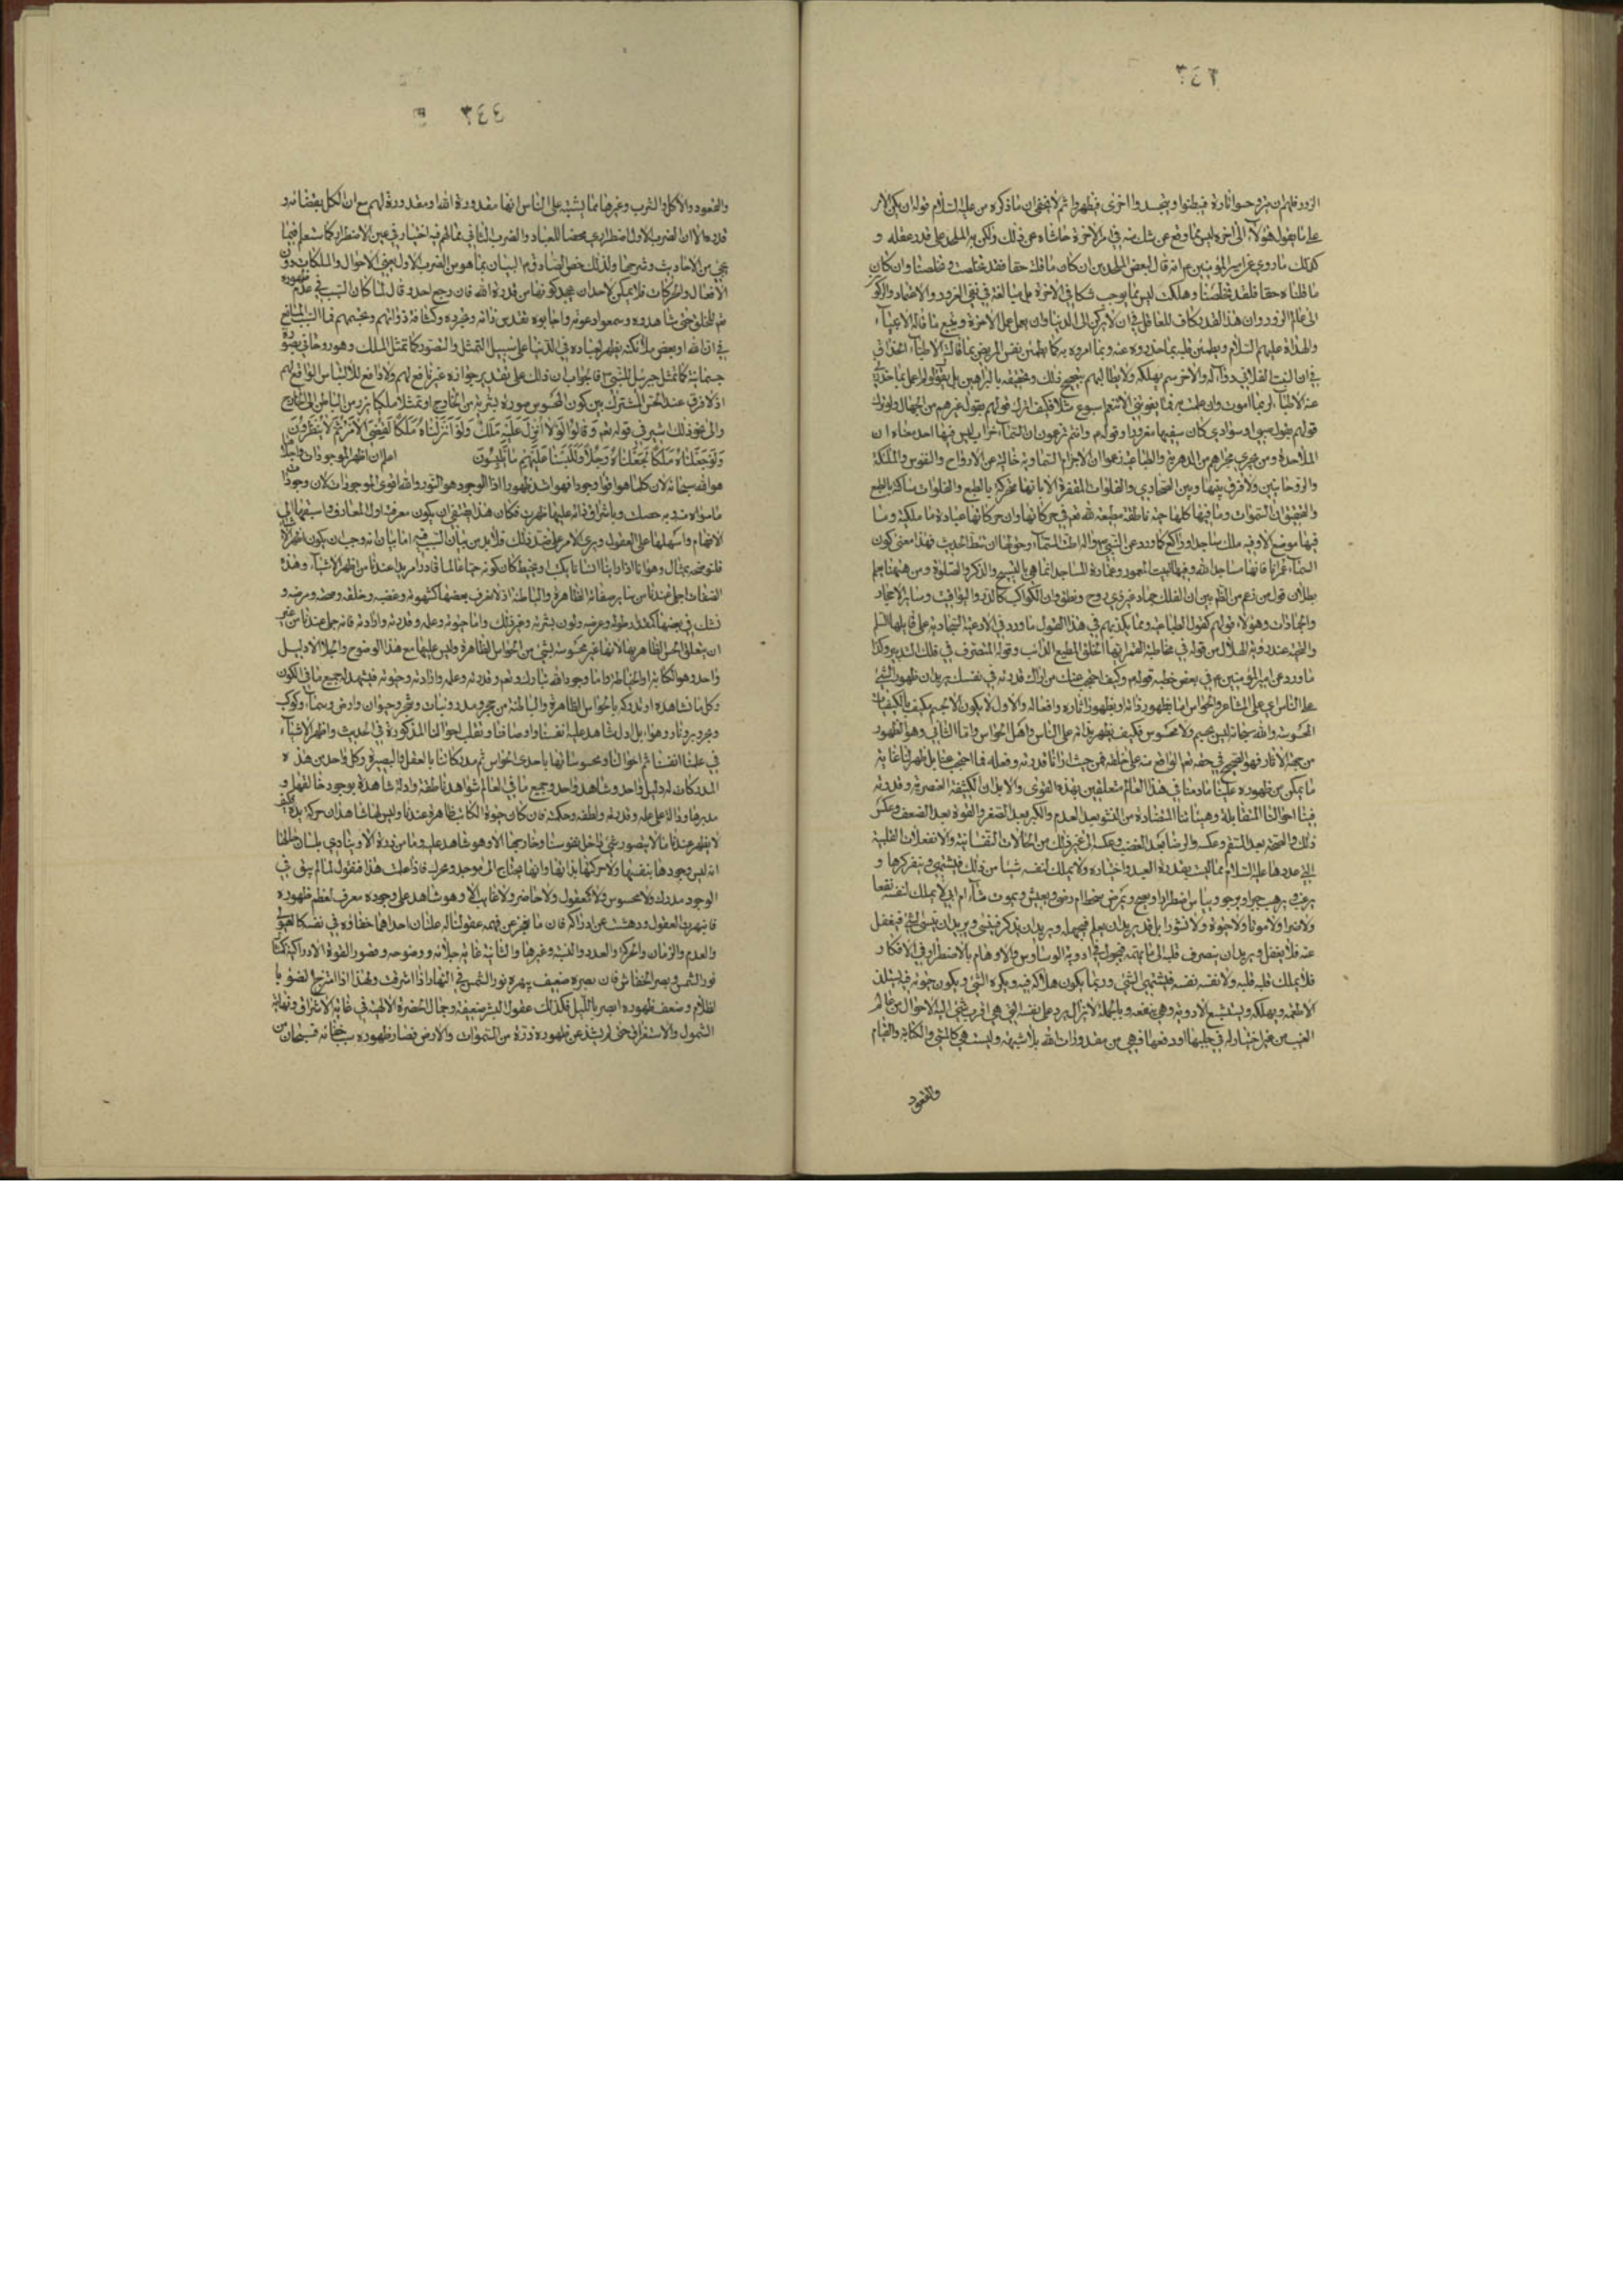 ٣٤٣
على ما يقوله هؤلاء الى اخره ليس مما وقع عن شك منه في امر الاخرة حاشاه عن ذلك ولكن يرد الملحد على قدر عقله و
كذلك ما روي عن امير المؤمنين ع انه قال لبعض الملحدين ان كان ما قلت حقا فقد تخلصت وتخلصنا وان كان
ما قلناه حقا فلقد تخلصنا وهلكت ليس مما يوجب شكا في الاخرة بل مبالغة في نفي الغرور والاعتماد والركون
الى عالم الزور وان هذا القدر كاف للعاقل في ان لا يركن الى الدنيا وان يعمل عمل الاخرة ويتبع ما قاله الانبياء
والهداة عليهم السلام ويطمئن قلبه بما حذروه عنه وبما امروه به كما يطمئن نفس المريض بما قالت الاطباء الحذاق
في ان النبت الفلاني دواء له والاخر سم يهلكه ولا يطالبهم بتصحيح ذلك وتحقيقه بالبراهين بل
قولهم بقول صبي او سوادي كان سفيها مغرورا وقوله ع وانتم تزعمون ان السماء خراب ليس فيها احد بناء ان
الملاحدة ومن يجري مجراهم من الدهرية والطباعية زعموا ان الاجرام السماوية خالية عن الارواح والنفوس والملائكة
والروحانيين ولا فرق بينها وبين الصحاري والفلوات المقفرة الا بانها متحركة بالطبع والفلوات ساكنة بالطبع
والتحقيق ان السموات وما فيها كلها حية ناطقة مطيعة لله تعم في حركاتها وان حركاتها عبادة ما ملكية وما
فيها موضع الا وفيه ملك ساجد او راكع كما ورد عن النبي ص واله اطت السماء وحق لها ان تئط الحديث فهذا معنى كون
السماء عمرانا فانها مساجد الله وفيها البيت المعمور وعمارة المساجد انما هي بالتسبيح والذكر والصلوة ومن هيهنا يعلم
بطلان قول من زعم من المتظمين ان الفلك جماد غير ذي روح ونطق وان الكواكب كالدر واليواقيت وسائر الاحجار
والجمادات وهؤلاء قولهم كقول الطباعية ومما يكذبهم في هذا القول ما ورد في الادعية السجادية على قايلها السلم
والتحية عند رؤية الهلال من قوله في مخاطبة القمر ايها الخلق المطيع الدائب وقوله المتصرف في فلك التدبير وكذا
ما ورد عن امير المؤمنين ع في بعض خطبه قوله ع وكيف احتجب عنك من اراك قدرته في نفسك يريد ان ظهور الشئ
على الناس اي على المشاعر والحواس اما بظهور ذاته او بظهور اثاره وافعاله والاول لا يكون الا لجسم مكيف بالكيفيات
المحسوسة والله سبحانه ليس بجسم ولا محسوس فكيف يظهر بذاته على الناس واهل الحواس واما الثاني وهو الظهور
من جهة الاثار فهو الصحيح في حقه تعم الواقع منه على خلقه فمن حيث ارانا قدرته وفعله فما احتجب عنا بل ظهر لنا غاية
ما يمكن من ظهوره علينا ما دمنا في هذا العالم متعلقين بهذه القوى والابدان الكثيفة العنصرية وقدرته
فينا احوالنا المتقابلة وهيئاتنا المتضادة من النشو بعد العدم والكبر بعد الصغر والقوة بعد الضعف وعكس
ذلك والصحة بعد السقم وعكسه والرضا بعد الغضب وعكسه الى غير ذلك من الحالات النفسانية والانفعالات القلبية
التي عددها عليه السلام مما ليست بقدرة العبد واختياره ولا يملك لنفسه شيئا من ذلك فيشتهي وينفر كرها و
يرغب ويرهب جبرا ويرجو ويياس اضطرارا ويصح ويمرض
ولا ضرا ولا موتا ولا حيوة ولا نشورا بل قد يريد ان يعلم فيجهله ويريد ان يذكر فينسى ويريد ان ينسى الشئ فيغفل
عنه فلا يغفل ويريد ان ينصرف قلبه الى ما يهمه فيجول في اودية الوساوس والاوهام بالاضطرار في الافكار
فلا يملك قلبه قلبه ولا نفسه نفسه فيشتهي الشئ وربما يكون هلاكه فيه ويكره الشئ ويكون حيوته فيه يستلذ
الاطعمة ويهلكه ويستبشع الادوية وهي ينفعه وبالجملة لا تزال يرد على نفسه التي هي اقرب شئ اليه الاحوال من عالم
الغيب من غير اختيار له في جلبها او دفعها فهي من مقدورات الله بلا شبهة وليست هي كالمشي والكتابة والقيام
والقعود
٣٤٤
والقعود والاكل والشرب وغيرها مما يشتبه على الناس انها مقدورة الله او مقدورة لهم مع ان الكل بقضائه و
قدره الا ان الضرب الاول اضطراري محضا للعباد والضرب الثاني مما لهم فيه اختيار في عين الاضطرار كما ستعلم فيما
يجئ من الاحاديث وشرحها ولذلك خص الصادق ع البيان بما هو من الضرب الاول يعني الاحوال والملكات دون
الافعال والحركات فلا يمكن لاحد ان يجحد كونها من قدرة الله فان رجع احد وقال لما كان السبب في عدم ظهوره
تعم للخلق حتى شاهدوه وسمعوا دعوته واجابوه تقدس ذاته وتجرده وكثافة ذواتهم وتجسمهم فما السبب المانع
في ان الله او بعض ملائكته يظهر لعباده في الدنيا على سبيل التمثل والتصور كما تمثل الملك وهو روحاني بصورة
جسمانية كما تمثل جبرئيل للنبي ص فالجواب ان ذلك على تقدير جوازه غير نافع لهم ولا دافع للالتباس الواقع لهم
اذ لا فرق عند الحس المشترك بين كون المحسوس صورة بشرية من الخارج او تمثلا ملكيا برز من الباطن الى الخارج
والى نحو ذلك اشير في قوله تعم وَقَالُوا لَوْلَا أُنْزِلَ عَلَيْهِ مَلَكٌ وَلَوْ أَنْزَلْنَاهُ مَلَكًا لَقُضِيَ الْأَمْرُ ثُمَّ لَا يُنْظَرُونَ
وَلَوْ جَعَلْنَاهُ مَلَكًا لَجَعَلْنَاهُ رَجُلًا وَلَلَبَسْنَا عَلَيْهِمْ مَا يَلْبِسُونَ اعلم ان اظهر الموجودات واجلاها
هو الله سبحانه لان كلما هو اقوى وجودا فهو اشد ظهورا اذ الوجود هو النور والله اقوى الموجودات لان وجود
ما سواه منه وبه حصلت وباشراق ذاته عليها ظهرت فكان هذا يقتضي ان يكون معرفته اول المعارف واسبقها الى
الافهام واسهلها على العقول ويرى الامر على ضد ذلك فلا بد من بيان السبب فيه اما بيان انه وجب ان يكون اظهر الاشياء
فلنوضحه بمثال وهو انا اذا راينا انسانا يكتب او يخيط كان كونه حيا عالما قادرا مريدا عندنا من اظهر الاشياء وهذه
الصفات اجلى عندنا من سائر صفاته الظاهرة والباطنة اذ لا نعرف بعضها كشهوته وغضبه وخلقه وصحته ومرضه و
نشك في بعضها كمقدار طوله وعرضه ولون بشرته وغير ذلك واما حيوته وعلمه وقدرته وارادته فانه جلي عندنا من غير
ان يتعلق الحس الظاهر بها لانها غير محسوسة بشئ من الحواس الظاهرة وليس عليها مع هذا الوضوح والجلاء الا دليل
واحد وهو الكتابة او الخياطة واما وجود الله تبارك وتعم وقدرته وعلمه وارادته وحيوته فيشهد له جميع ما في الكون
وكل ما نشاهده او ندركه بالحواس الظاهرة والباطنة من حجر ومدر ونبات وشجر وحيوان وارض وسماء وكوكب
وبحر وبر ونار وهواء بل اول شاهد عليه انفسنا واوصافنا وتقلب احوالنا المذكورة في الحديث واظهر الاشياء
في علمنا انفسنا ثم احوالنا ومحسوساتها باحدى الحواس ثم مدركاتنا بالعقل والبصيرة وكل واحد من هذه
المدركات له دليل واحد وشاهد واحد وجميع ما في العالم شواهد ناطقة وادلة شاهدة بوجود خالقها و
مدبرها ودالة على علمه وقدرته ولطفه وحكمته فان كان حيوة الكاتب ظاهرة عندنا وليس لها شاهد الا حركة يده فكيف
لا يظهر عندنا ما لا يتصور شئ داخل نفوسنا وخارجها الا وهو شاهد عليه وما من ذرة الا وينادي بلسان حالها
انه ليس وجودها بنفسها ولا حركتها بذاتها وانها يحتاج الى موجد ومحرك فاذا علمت هذا فنقول لما لم يبق في
الوجود مدرك ولا محسوس ولا معقول ولا حاضر ولا غايب الا وهو شاهد على وجوده معرف لعظم ظهوره
فانبهرت العقول ودهشت عن ادراكه فان ما يعجز عن فهمه عقولنا له علتان احداهما خفاؤه في نفسه كالهيولى
والعدم والزمان والحركة والعدد والنسبة وغيرها والثانية غاية جلائه ووضوحه وقصور القوة الادراكية كما
نور الشمس وبصر الخفاش فان بصره ضعيف يبهره نور الشمس في النهار اذا اشرقت ولهذا اذا امتزج الضوء با
لظلام وضعف ظهوره ابصر بالليل فكذلك عقول البشر ضعيفة وجمال الحضرة الالهية في غاية الاشراق ونهاية
الشمول والاستغراق حتى لم يشذ عن ظهوره ذرة من السموات والارض فصار ظهوره سبب خفائه فسبحان من